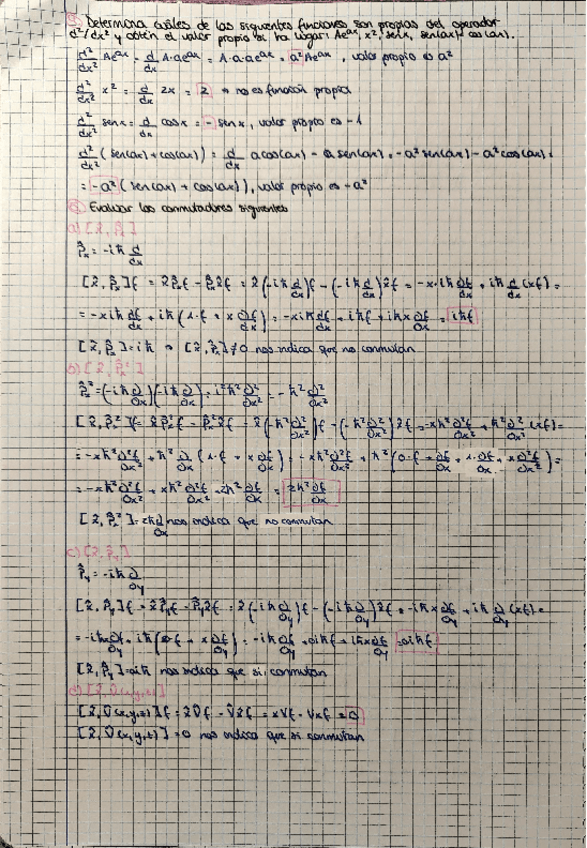 ⑤ Determina cuáles de las siguientes funciones son propias del operador
d²/dx² y obtén el valor propio si ha lugar: Ae^ax, x², senx, sen(ax)+cos(ax).
d²/dx² Ae^ax = d/dx A·ae^ax = A·a·ae^ax = a²Ae^ax, valor propio es a²
d²/dx² x² = d/dx 2x = 2 → no es función propia
d²/dx² senx = d/dx cosx = -senx, valor propio es -1
d²/dx² (sen(ax)+cos(ax)) = d/dx acos(ax) - a sen(ax) = -a² sen(ax) - a² cos(ax) =
= -a² (sen(ax) + cos(ax)), valor propio es -a²
⑥ Evaluar los conmutadores siguientes
a) [x̂, P̂x]
P̂x = -iħ d/dx
[x̂, P̂x]f = x̂P̂xf - P̂xx̂f = x̂(-iħ d/dx)f - (-iħ d/dx)x̂f = -x·iħ df/dx + iħ d/dx (xf) =
= -xiħ df/dx + iħ (1·f + x ∂f/∂x) = -xiħ df/dx + iħf + iħx ∂f/∂x = iħf
[x̂, P̂x] = iħ → [x̂, P̂x] ≠ 0 nos indica que no conmutan
b) [x̂, P̂x²]
P̂x² = (-iħ ∂/∂x)(-iħ ∂/∂x) = i²ħ² ∂²/∂x² = -ħ² ∂²/∂x²
[x̂, P̂x²]f = x̂P̂x²f - P̂x²x̂f = x̂(-ħ² ∂²/∂x²)f - (-ħ² ∂²/∂x²)x̂f = -xħ² ∂²f/∂x² + ħ² ∂²/∂x² (xf) =
= -xħ² ∂²f/∂x² + ħ² ∂/∂x (1·f + x ∂f/∂x) = -xħ² ∂²f/∂x² + ħ² (0·f + ∂f/∂x + 1·∂f/∂x + x ∂²f/∂x²) =
= -xħ² ∂²f/∂x² + xħ² ∂²f/∂x² + 2ħ² ∂f/∂x = 2ħ² ∂f/∂x
[x̂, P̂x²] = 2ħ ∂/∂x nos indica que no conmutan
c) [x̂, P̂y]
P̂y = -iħ ∂/∂y
[x̂, P̂y]f = x̂P̂yf - P̂yx̂f = x̂(-iħ ∂/∂y)f - (-iħ ∂/∂y)x̂f = -iħx ∂f/∂y + iħ ∂/∂y (xf) =
= -iħx ∂f/∂y + iħ (0·f + x ∂f/∂y) = -iħ ∂f/∂y + 0iħf + iħx ∂f/∂y = 0iħf
[x̂, P̂y] = 0iħ nos indica que si conmutan
d) [x̂, V̂(x,y,z)]
[x̂, V̂(x,y,z)]f = x̂V̂f - V̂x̂f = xVf - Vxf = 0
[x̂, V̂(x,y,z)] = 0 nos indica que si conmutan